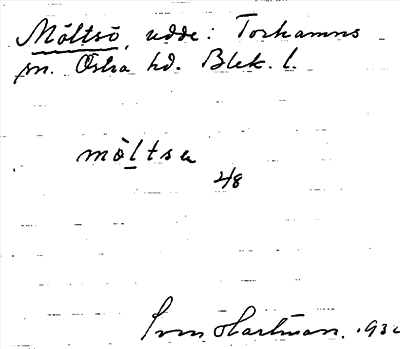 Möltsö, udde: Torhamns
sn. Östra hd. Blek. l.
mòltsu
2/8
Sven Hartman. 193